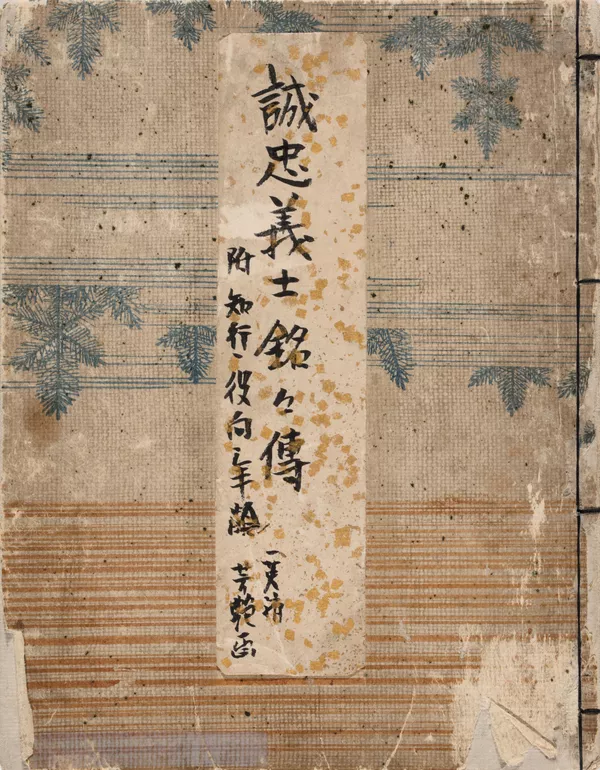 誠忠義士銘々傳
附 知行、役向、年齢
一英斎
芳艶画